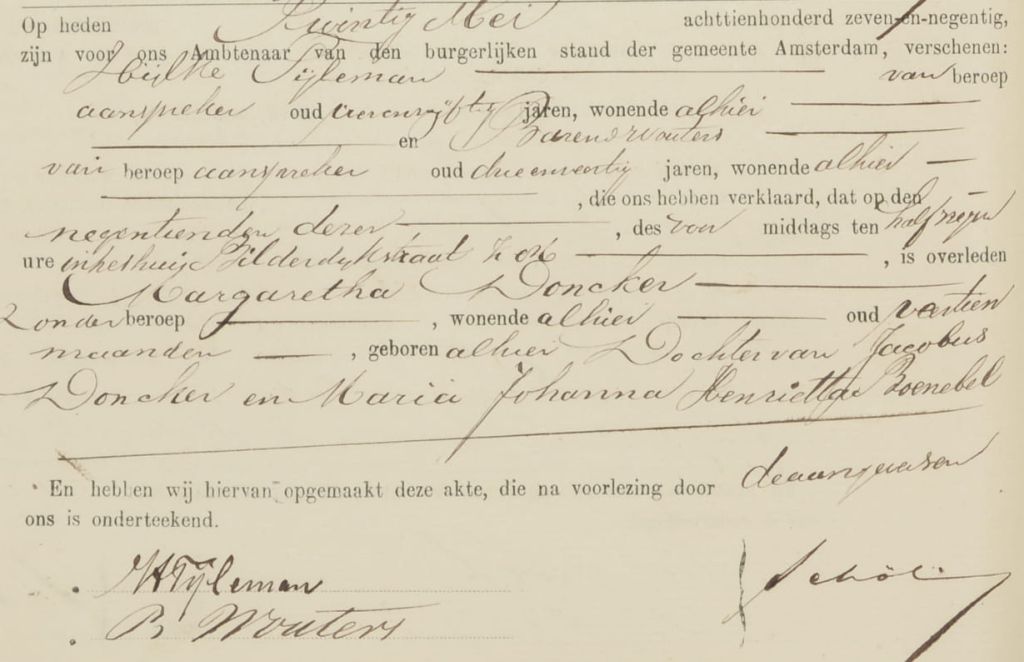 Op heden Twintig Mei achttienhonderd zeven-en-negentig,
zijn voor ons Ambtenaar van den burgerlijken stand der gemeente Amsterdam, verschenen:
Tijleman van beroep
aanspreker oud vierenvijftig jaren, wonende alhier
en Barend Wouters
van beroep aanspreker oud drieenveertig jaren, wonende alhier
, die ons hebben verklaard, dat op den
negentienden dezer , des voor middags ten half negen
ure in het huis Bilderdijkstraat , is overleden
Margaretha Doncker
Zonder beroep , wonende alhier oud veertien
maanden , geboren alhier Dochter van Jacobus
Doncker en Maria Johanna Henrietta Boenebel
En hebben wij hiervan opgemaakt deze akte, die na voorlezing door
ons is onderteekend.
HTijleman
B Wouters